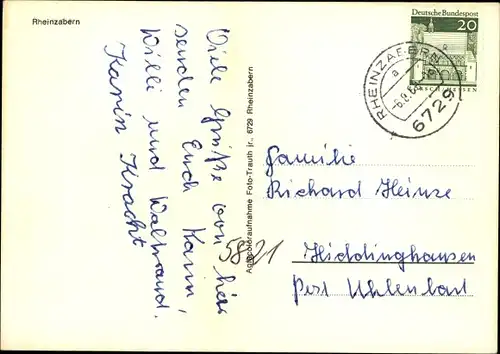 Rheinzabern
Viele Grüße von hier
senden Euch Karin,
Willi und Waltraud.
Karin Kracht
Agfacoloraufnahme Foto-Trauth jr., 6729 Rheinzabern
Deutsche Bundespost
20
LORSCH/HESSEN
RHEINZABERN
a
6729
Familie
Richard Heinze
5821 Hiddinghausen
Post Uhlenbart